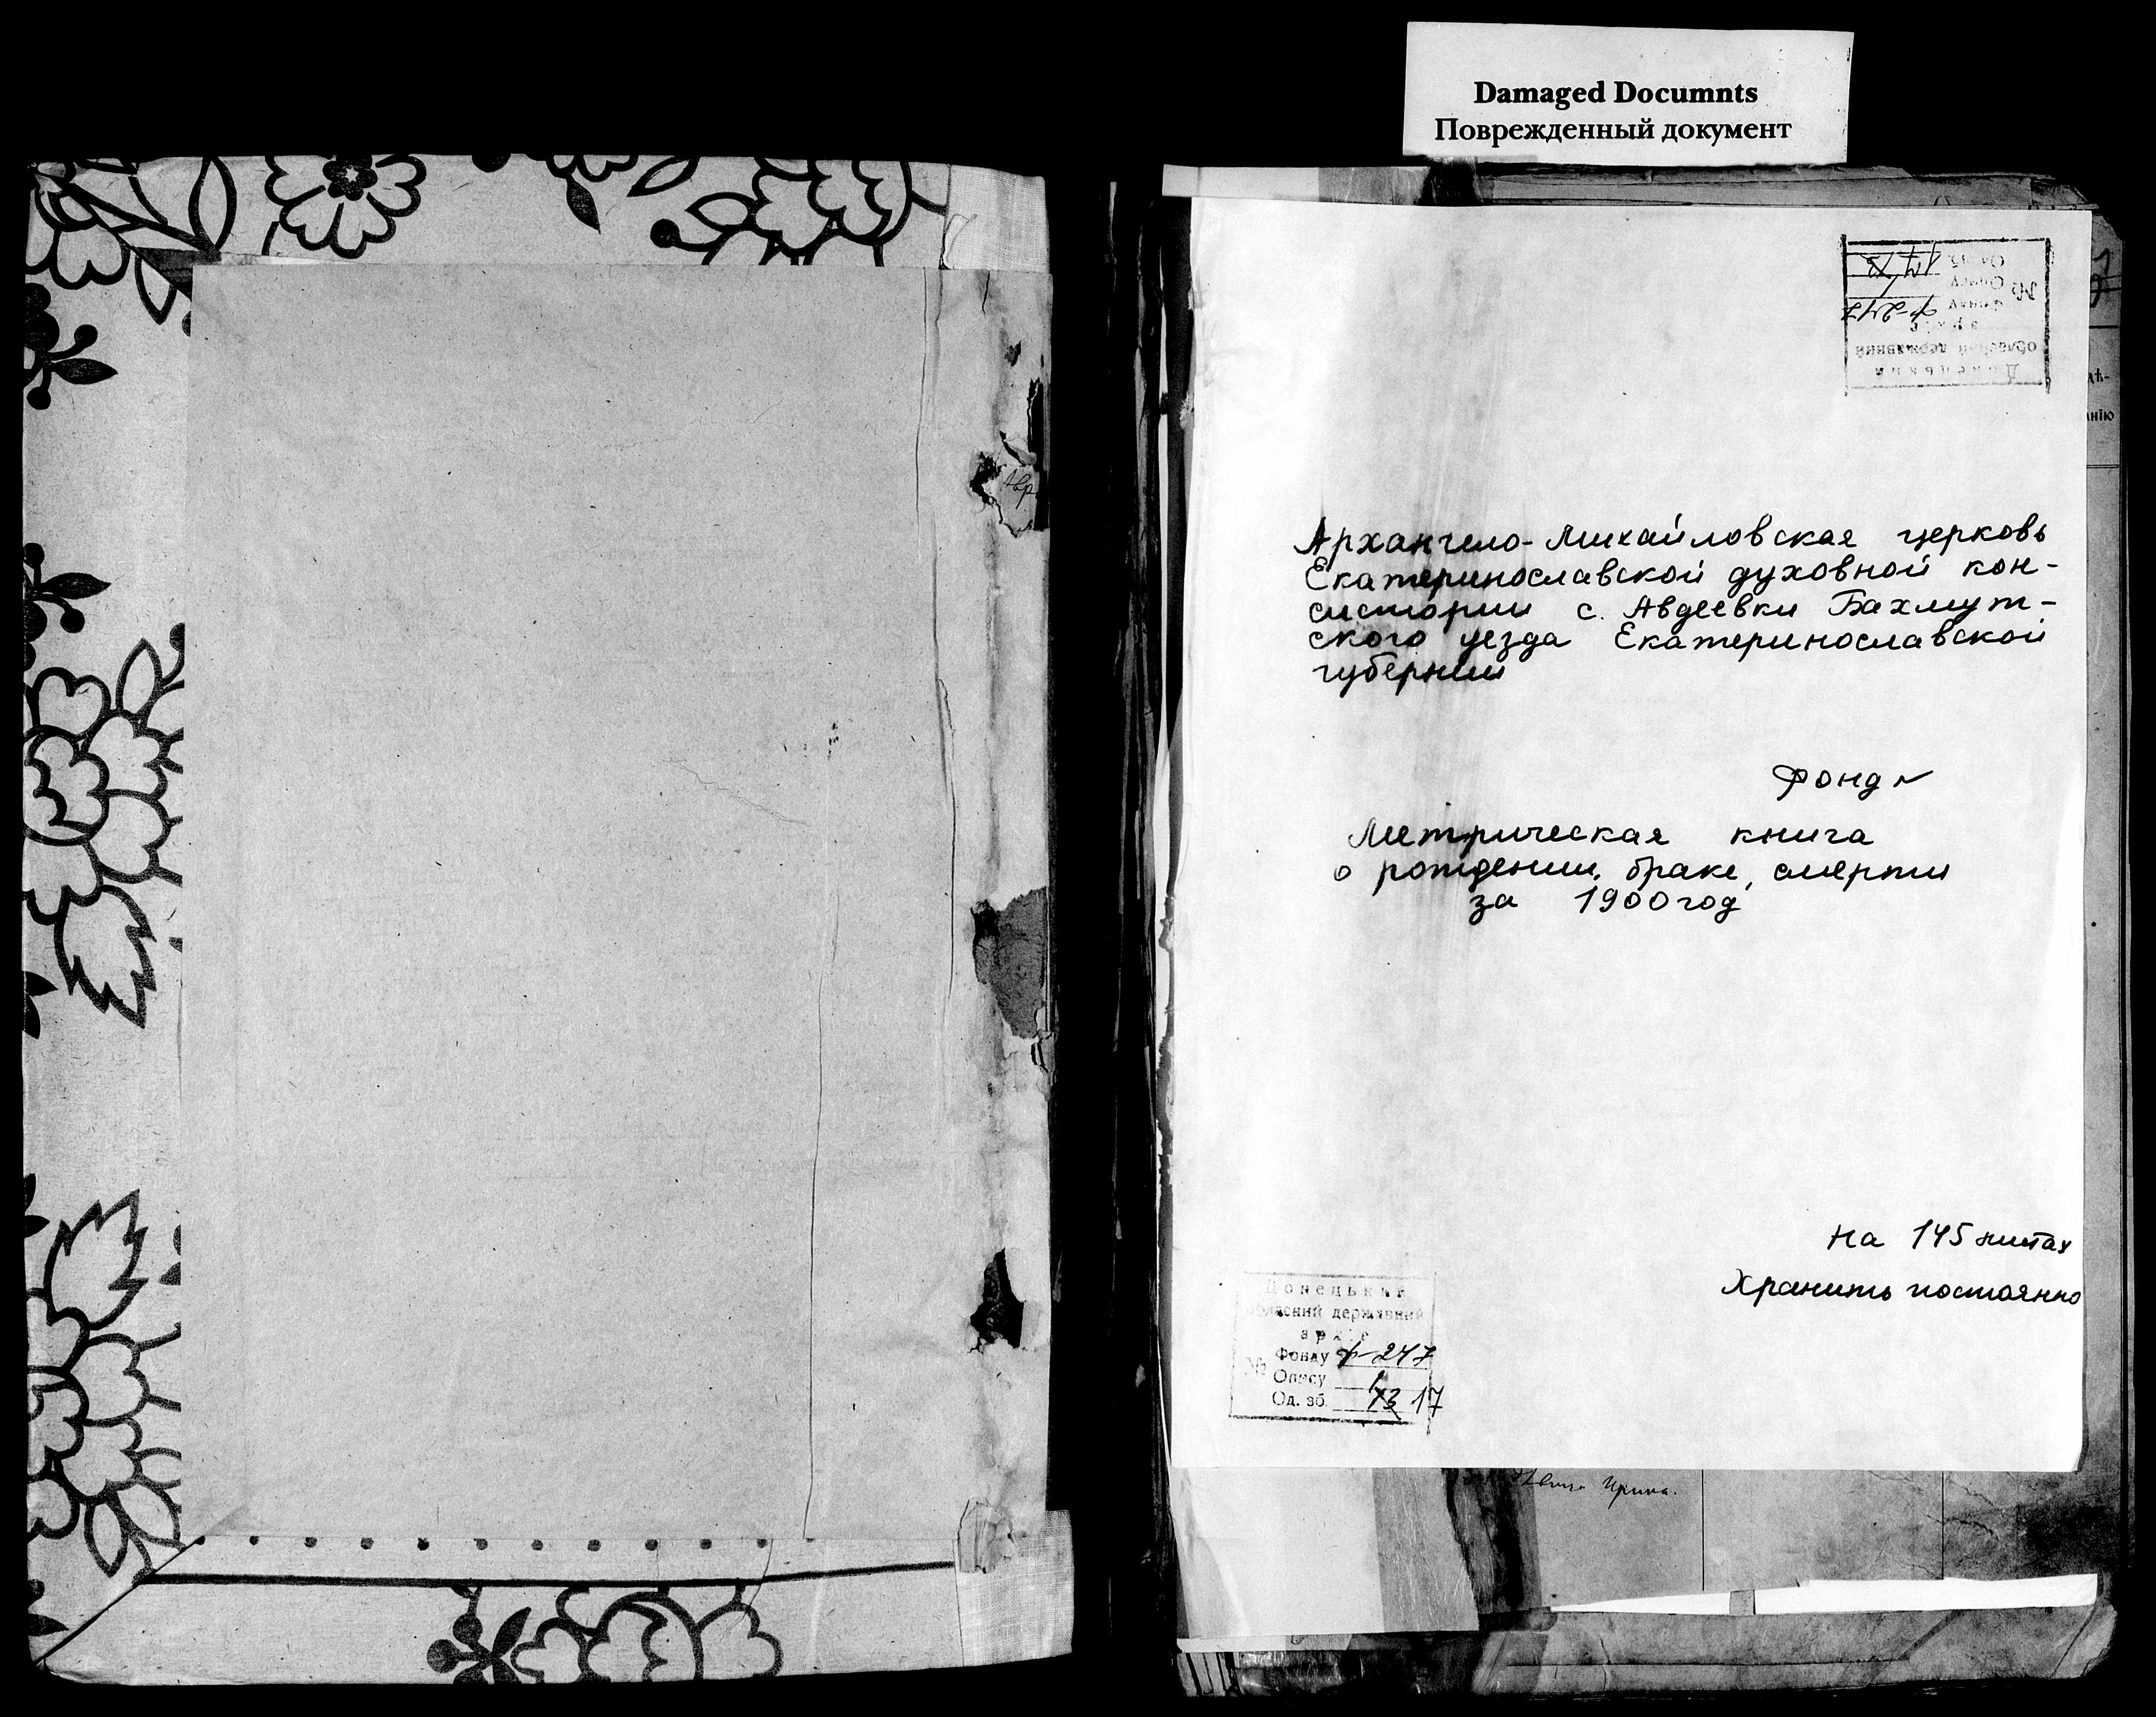 Damaged Documnts
Поврежденный документ
Архангело-Михайловская церковь
Екатеринославской духовной кон-
систории с. Авдеевки Бахмут-
ского уезда Екатеринославской
губернии
Фонд
Метрическая книга
о рождении, браке, смерти
за 1900 год
на 145 листах
Хранить постоянно
Донецький
обласний державний
архів
№ Фонду ф-247
Опису 1
Од. зб. 13 17
Донецький
обласний державний
архів
№ Фонду ф-247
Опису
Од. зб.
дѣ-
анію
Ирина.